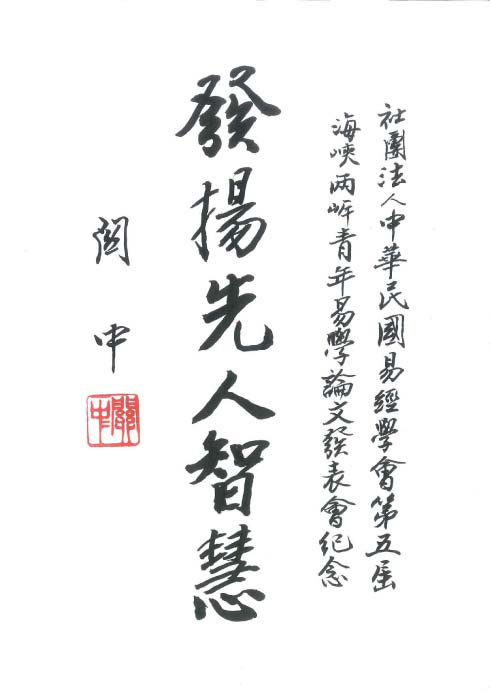 社團法人中華民國易經學會第五屆
海峽兩岸青年易學論文發表會紀念
發揚先人智慧
關中
關中